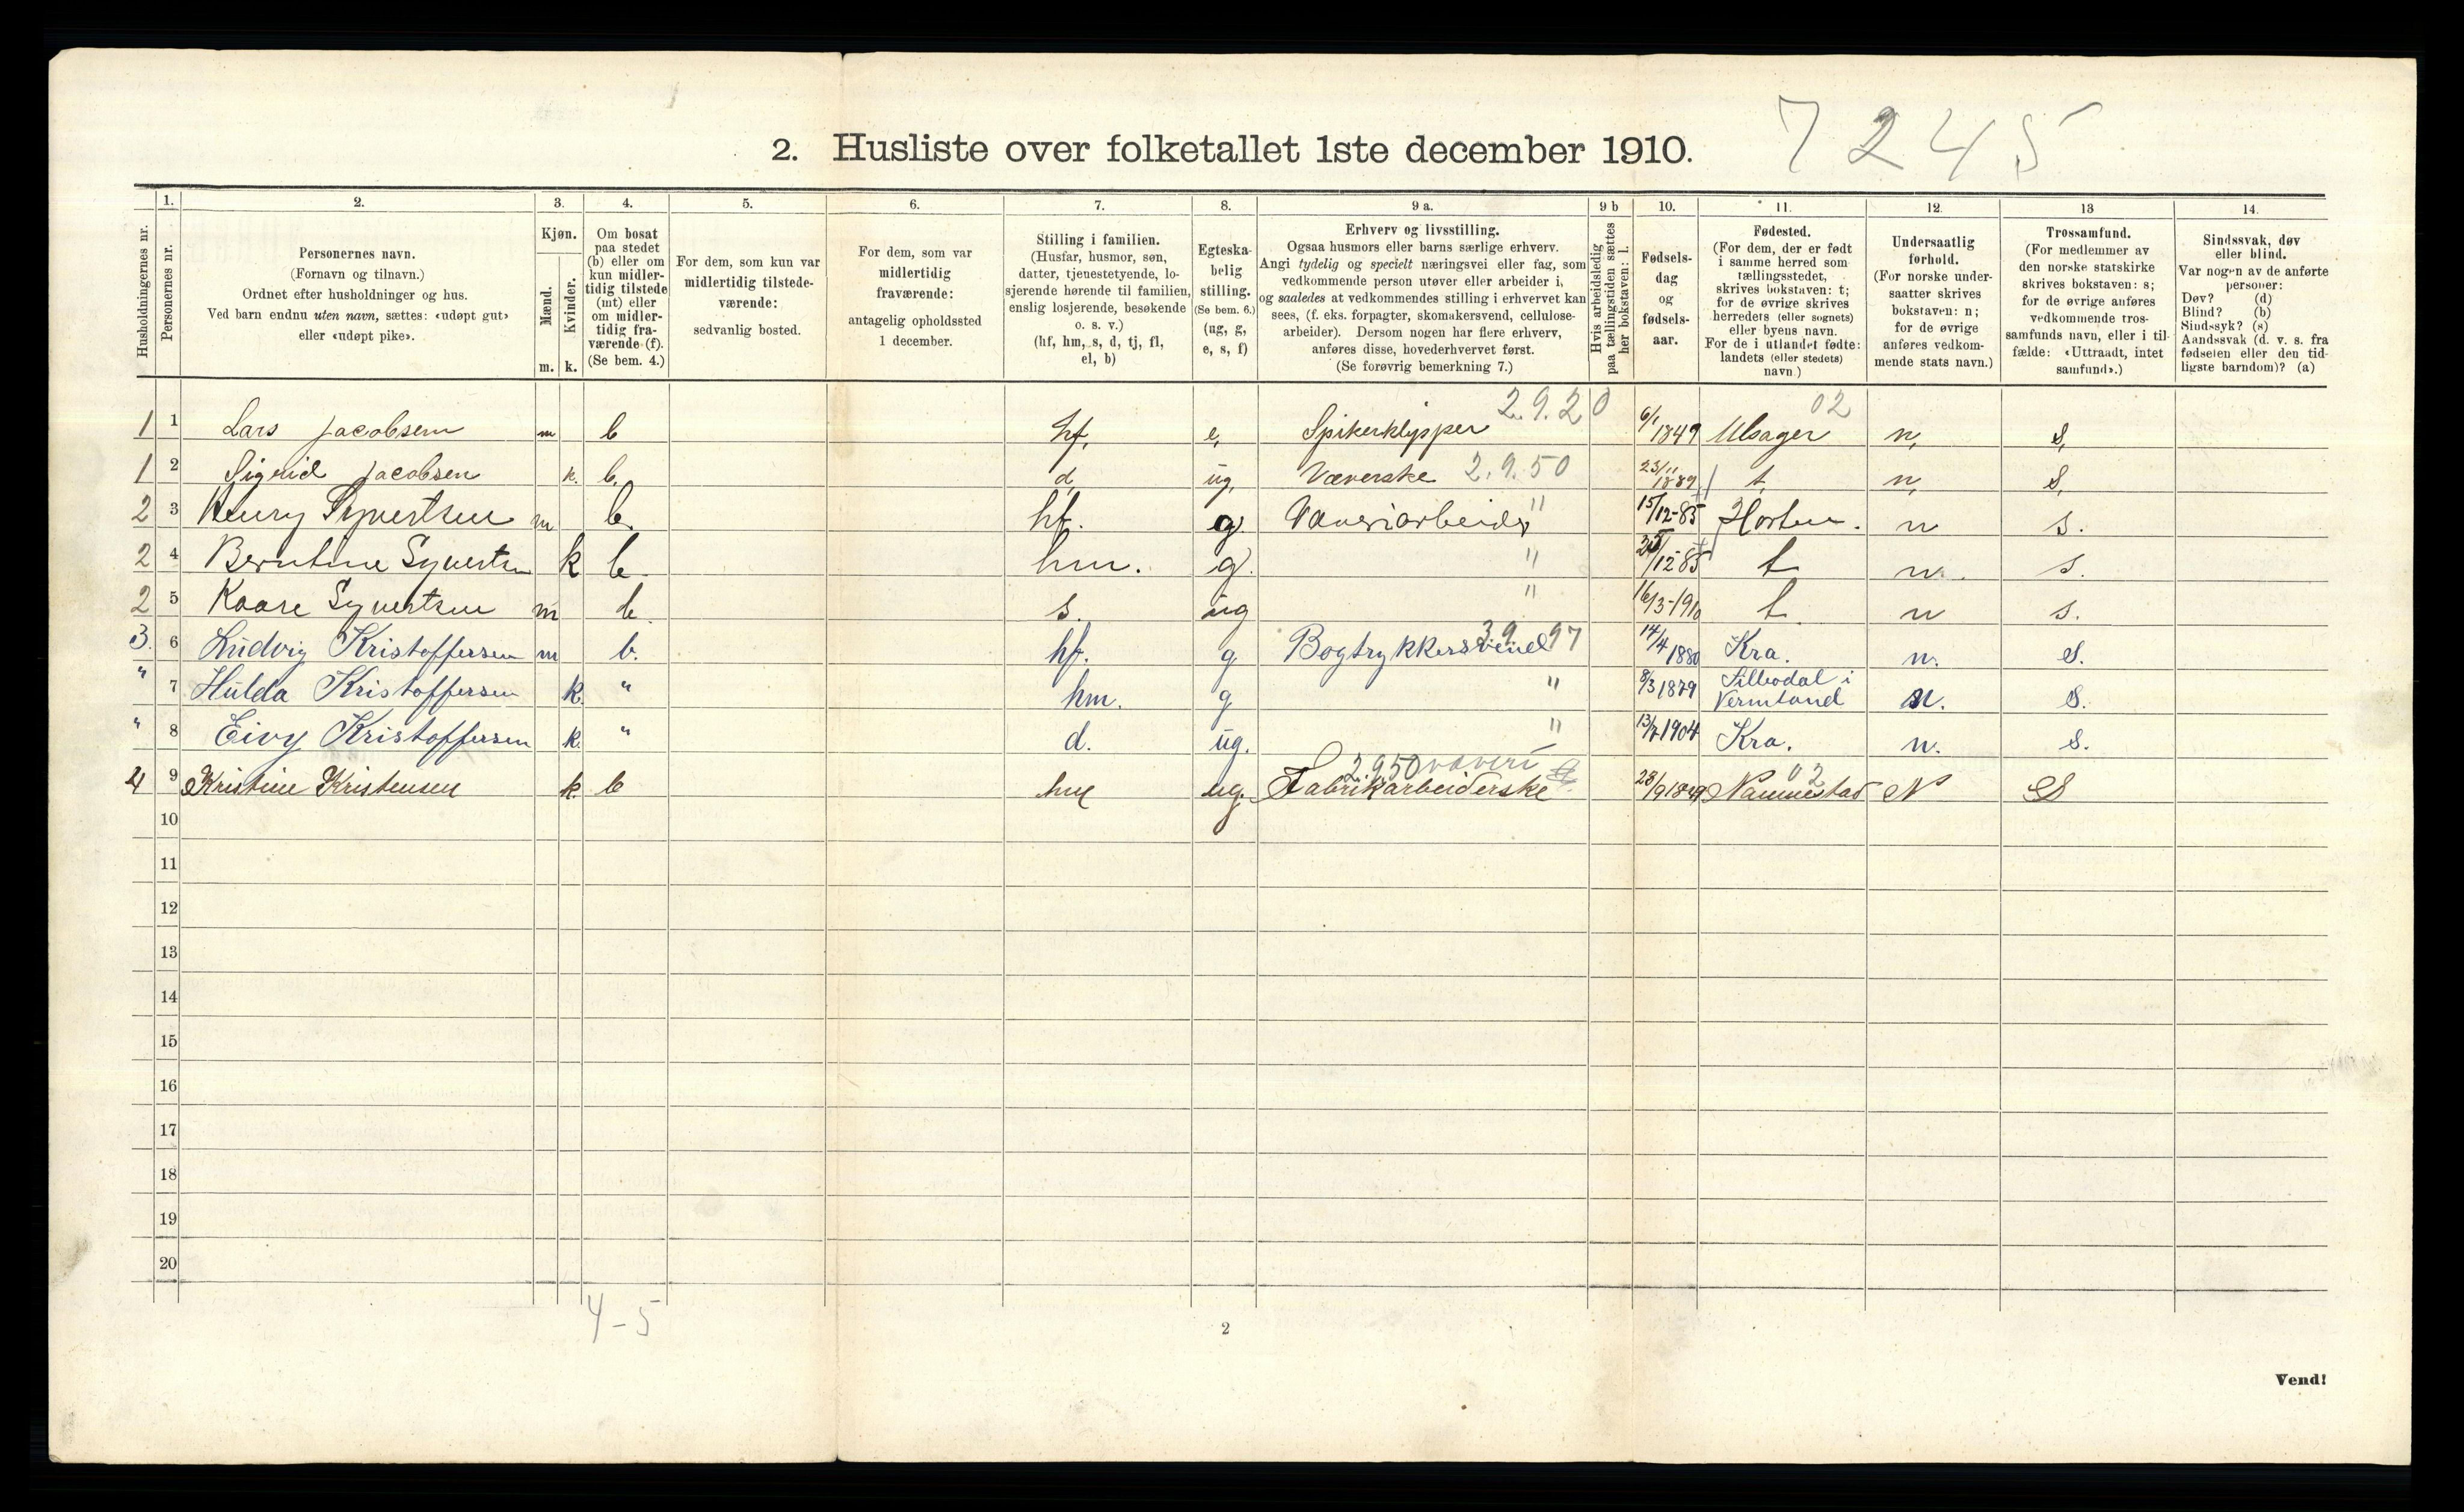 2. Husliste over folketallet 1ste december 1910. 7245
Husholdningernes nr.
1.
Personernes nr.
2.
Personernes navn.
(Fornavn og tilnavn.)
Ordnet efter husholdninger og hus.
Ved barn endnu uten navn, sættes: «udøpt gut»
eller «udøpt pike».
3.
Kjøn.
Mænd.
Kvinder.
m. k.
4.
Om bosat
paa stedet
(b) eller om
kun midler-
tidig tilstede
(mt) eller
om midler-
tidig fra-
værende (f).
(Se bem. 4.)
5.
For dem, som kun var
midlertidig tilstede-
værende:
sedvanlig bosted.
6.
For dem, som var
midlertidig
fraværende:
antagelig opholdssted
1 december.
7.
Stilling i familien.
(Husfar, husmor, søn,
datter, tjenestetyende, lo-
sjerende hørende til familien,
enslig losjerende, besøkende
o. s. v.)
(hf, hm, s, d, tj, fl,
el, b)
8.
Egteska-
belig
stilling.
(Se bem. 6.)
(ug, g,
e, s, f)
9 a.
Erhverv og livsstilling.
Ogsaa husmors eller barns særlige erhverv.
Angi tydelig og specielt næringsvei eller fag, som
vedkommende person utøver eller arbeider i,
og saaledes at vedkommendes stilling i erhvervet kan
sees, (f. eks. forpagter, skomakersvend, cellulose-
arbeider). Dersom nogen har flere erhverv,
anføres disse, hovederhvervet først.
(Se forøvrig bemerkning 7.)
9 b
Hvis arbeidsledig
paa tællingstiden sættes
her bokstaven: l.
10.
Fødsels-
dag
og
fødsels-
aar.
11.
Fødested.
(For dem, der er født
i samme herred som
tællingsstedet,
skrives bokstaven: t;
for de øvrige skrives
herredets (eller sognets)
eller byens navn.
For de i utlandet fødte:
landets (eller stedets)
navn.)
12.
Undersaatlig
forhold.
(For norske under-
saatter skrives
bokstaven: n;
for de øvrige
anføres vedkom-
mende stats navn.)
13
Trossamfund.
(For medlemmer av
den norske statskirke
skrives bokstaven: s;
for de øvrige anføres
vedkommende tros-
samfunds navn, eller i til-
fælde: «Uttraadt, intet
samfund».)
14.
Sindssvak, døv
eller blind.
Var nogen av de anførte
personer:
Døv? (d)
Blind? (b)
Sindssyk? (s)
Aandssvak (d. v. s. fra
fødselen eller den tid-
ligste barndom)? (a)
2.9.20 02
1 1 Lars Jacobsen m b hf. e, Spikerklipper 6/1 1849 Ulsager n, S,
1 2 Sigrid Jacobsen k. b. d ug, Væverske 2.9.50 23/11 1889 t, n, S,
2 3 Henry Syvertsen m b. hf. g. Væveriarbeider " 15/12-85 Horten. n s.
2 4 Berntine Syvertsen k b. hm. g. " /12-85 t n. s.
2 5 Kaare Syvertsen m b. s. ug " 16/3-1910 t. n s.
3. 6 Ludvig Kristoffersen m b. hf. g Bogtrykkersvend 3.9.97 14/4 1880 Kra. n. S.
" 7 Hulda Kristoffersen k. " hm. g " 8/3 1879 Silbodal i Vermland n. S.
" 8 Eivy Kristoffersen k. " d. ug. " 13/7 1904 Kra. n. S.
2950 væveri 02
4 9 Kristine Kristensen k. b hm ug. Fabrikarbeiderske 28/9 1849 Nannestad N S
10
11
12
13
14
15
16
17
18
19
20
4-5
2
Vend!